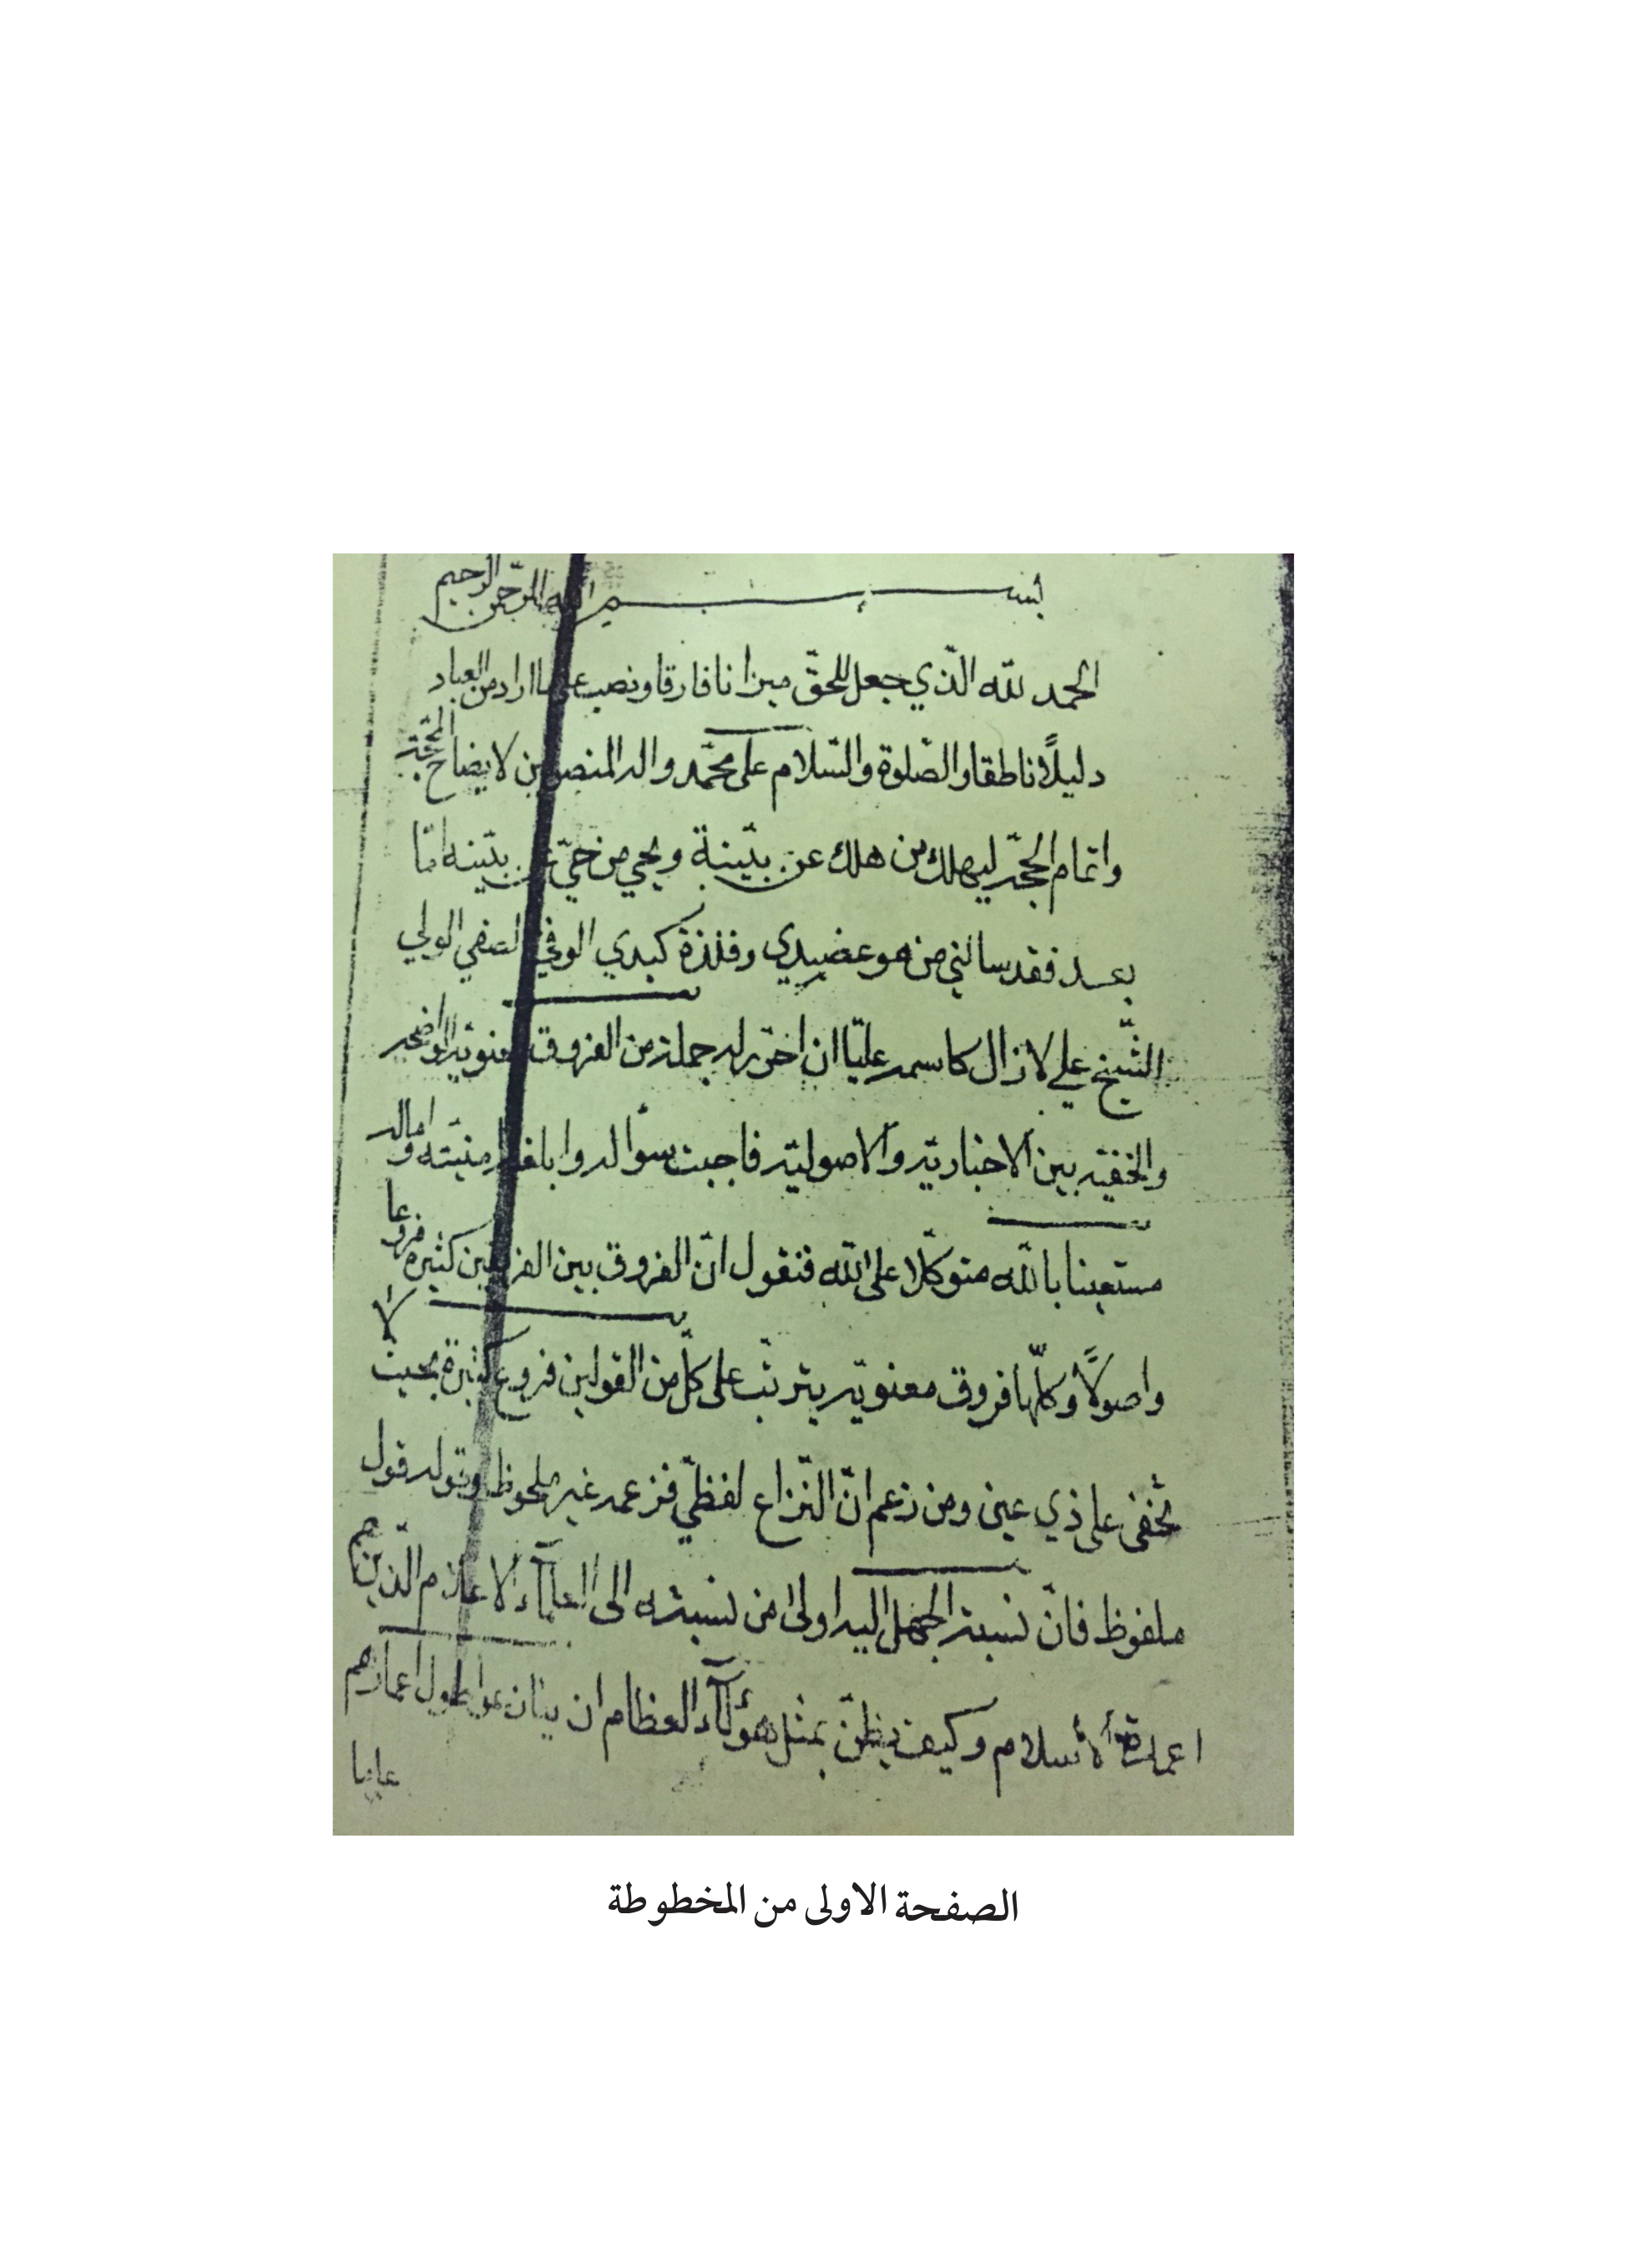 بسم الله الرحمن الرحيم
الحمد لله الّذي جعل للحقّ ميزانا فارقا ونصب على ما اراد من العباد
دليلاً ناطقا والصّلوة والسّلام على محمّد واله المنصوبين لايضاح المحجّة
واتمام الحجّه ليهلك من هلك عن بيّنة ويحيي من حيّ عن بيّنه امّا
بعد فقد سالني من هو عضيدي وفلذة كبدي الوفي الصفي الولي
الشّيخ علي لازال كاسمه عليّا ان احرّر له جملة من الفروق المعنويّه الواضحه
والخفيّه بين الاخباريّه والاصوليّه فاجبت سؤاله وابلغته منيّته واماله
مستعينا بالله متوكّلا على الله فنقول انّ الفروق بين الفريقين كثيره فروعا
واصولاً وكلّها فروق معنويّه يترتّب على كلّ من القولين فروع كثيرة بحيث لا
تخفى على ذي عين ومن زعم انّ النّزاع لفظيّ فزعمه غير ملحوظ وقوله قول
ملفوظ فانّ نسبة الجهل اليه اولى من نسبته الى العلمآء الاعلام الّذين هم
اعمدة الاسلام وكيف يظنّ بمثل هؤلآء العظام ان يتنازعوا طول اعمارهم
الصفحة الاولى من المخطوطة